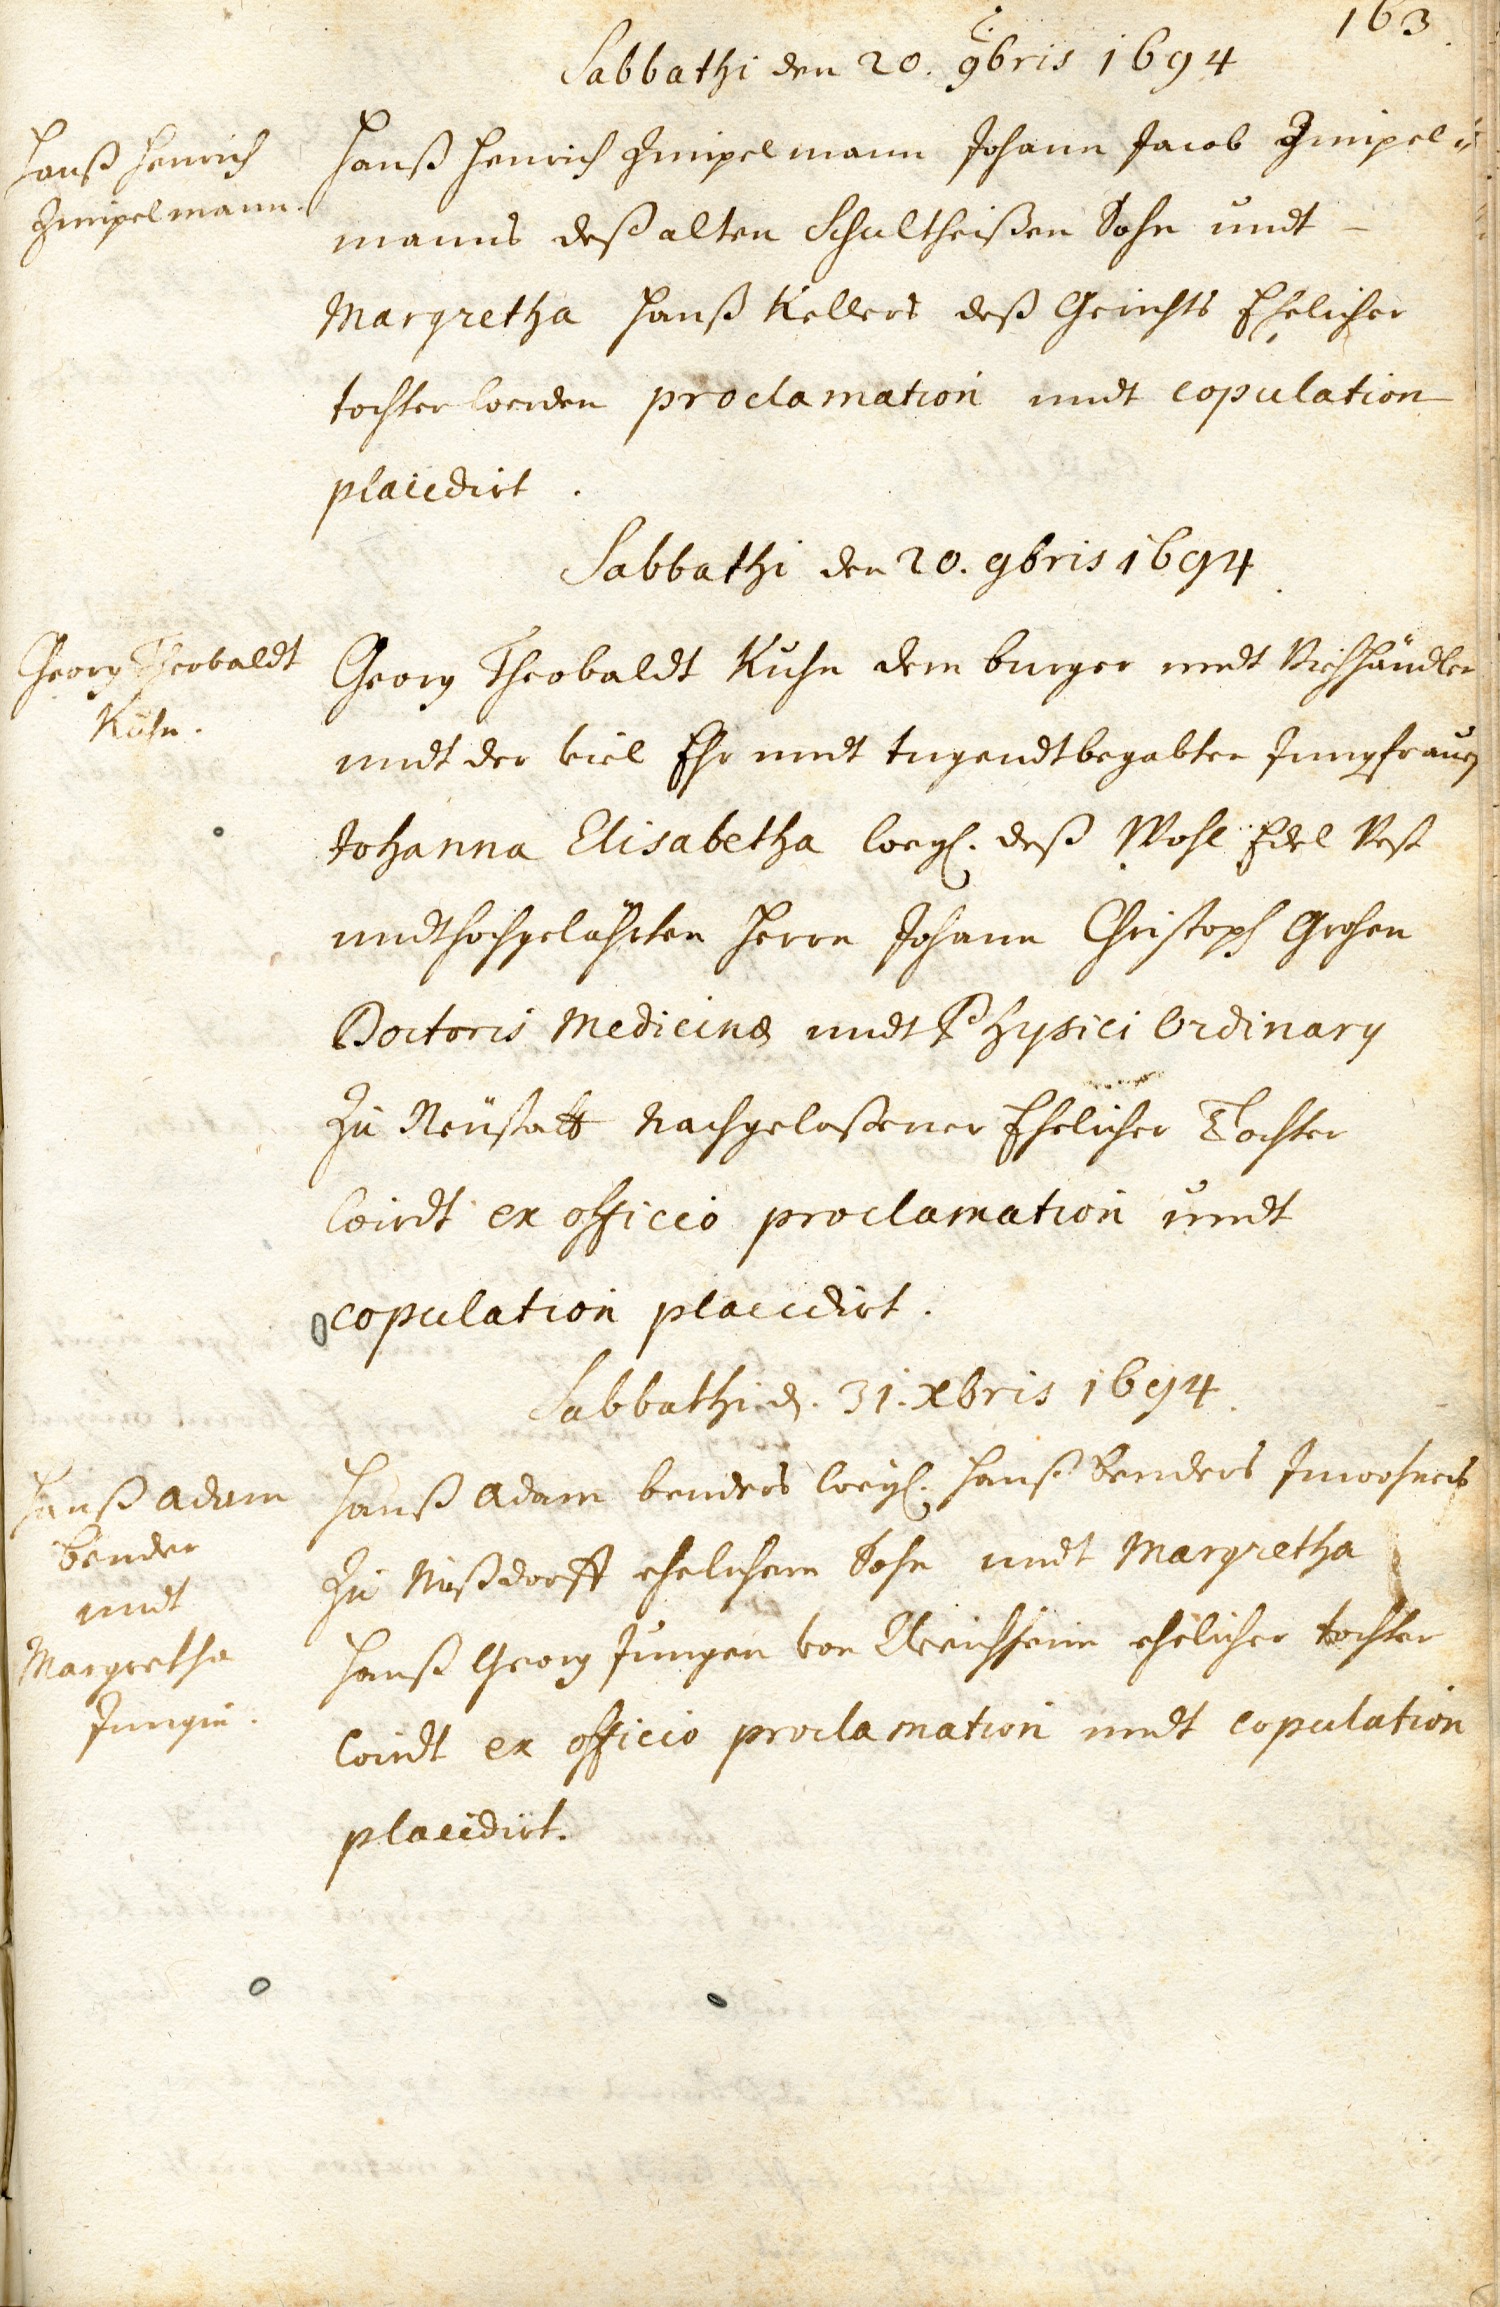 163.
Sabbathi den 20. 9bris 1694
Hanß Henrich
Zimpelmann.
Hanß Henrich Zimpelmann Johann Jacob Zimpel=
manns deß alten Schultheißen Sohn undt
Margretha Hanß Kellers deß Gerichts Ehelicher
tochter werden proclamation undt copulation
placidirt.
Sabbathi den 20. 9bris 1694
Georg Theobaldt
Kuhn.
Georg Theobaldt Kuhn dem burger undt Viehhändler
undt der viel Ehr undt tugendtbegabten Jungfrauen
Johanna Elisabetha weyl. deß Wohl Edel Vest
undt hochgelährten Herrn Johann Christoph Grohen
Doctoris Medicinæ undt Physici Ordinary
Zu Neüstatt Nachgelaßener Ehelicher Tochter
wirdt ex officio proclamation undt
copulation placidirt.
Sabbathi d. 31. Xbris 1694
Hanß Adam
bender
undt
Margretha
Jungin.
Hanß Adam benders weyl. Hanß benders Inwohners
Zu Nußdorff ehelichem Sohn undt Margretha
Hanß Georg Jungen von ehelicher tochter
wirdt ex officio proclamation undt copulation
placidirt.